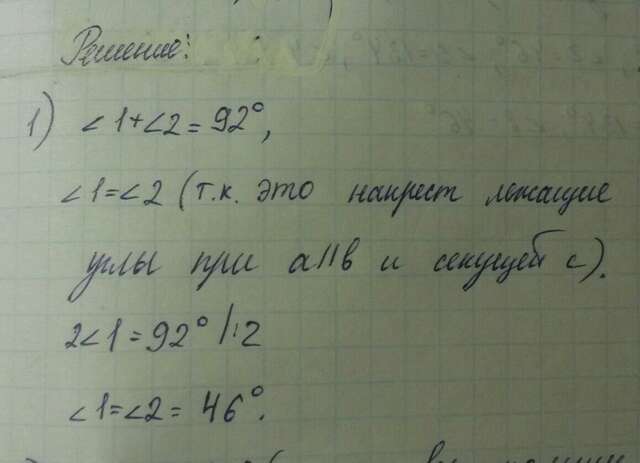 Решение:
1) ∠1+∠2=92°,
∠1=∠2 (т.к. это накрест лежащие
углы при a||b и секущей c).
2∠1=92° |:2
∠1=∠2=46°.